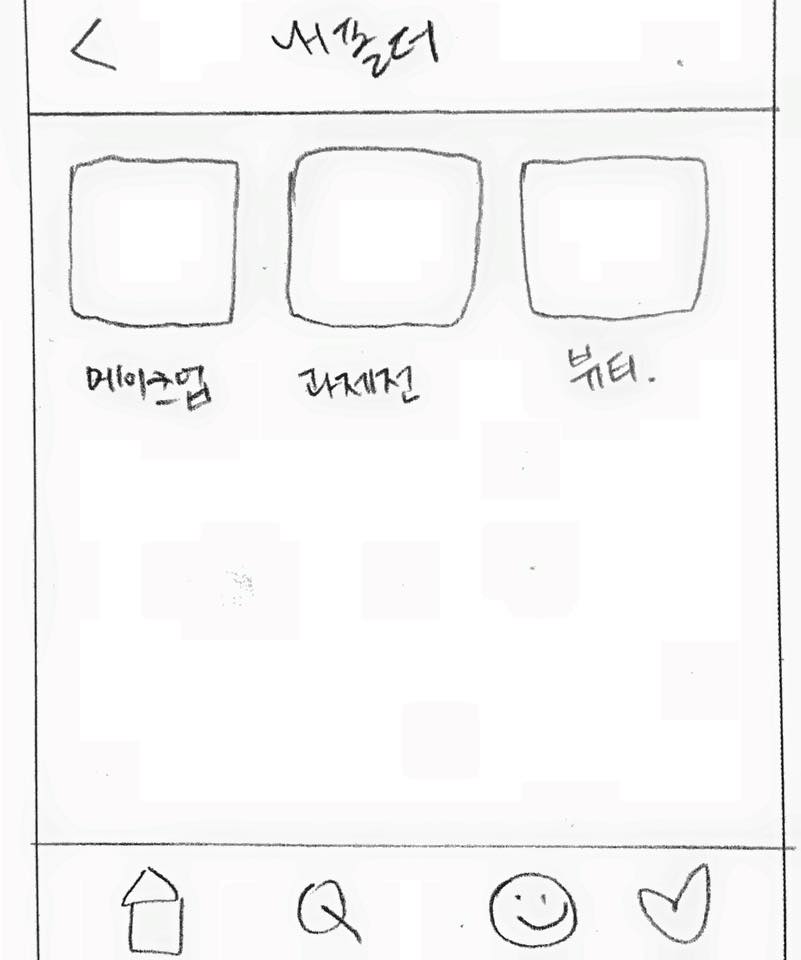 새폴더
메이크업 과제전 뷰티.